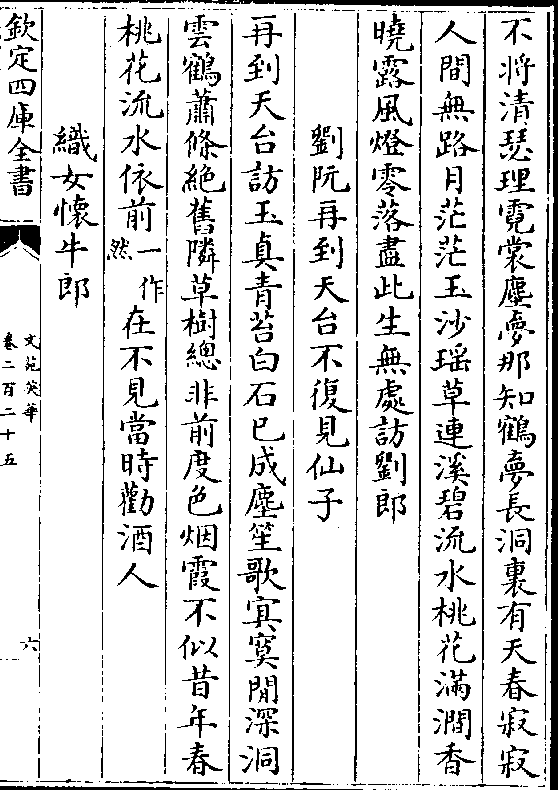 不將清瑟理霓裳塵夢那知鶴夢長洞裏有天春寂寂
人間無路月茫茫玉沙瑶草連溪碧流水桃花滿澗香
曉露風燈零落盡此生無處訪劉郎
劉阮再到天台不復見仙子
再到天台訪玉真青苔白石已成塵笙歌㝠寞閒深洞
雲鶴蕭條絶舊隣草樹總非前度色烟霞不似昔年春
桃花流水依前一作然在不見當時勸酒人
織女懷牛郎
欽定四庫全書
文苑英華
卷二百二十五
六